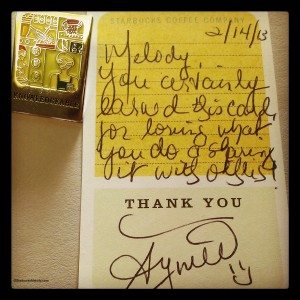 STARBUCKS COFFEE COMPANY
2/14/13
Melody,
You certainly
earned this card,
for loving what
you do & sharing
it with others!
THANK YOU
KNOWLEDGEABLE